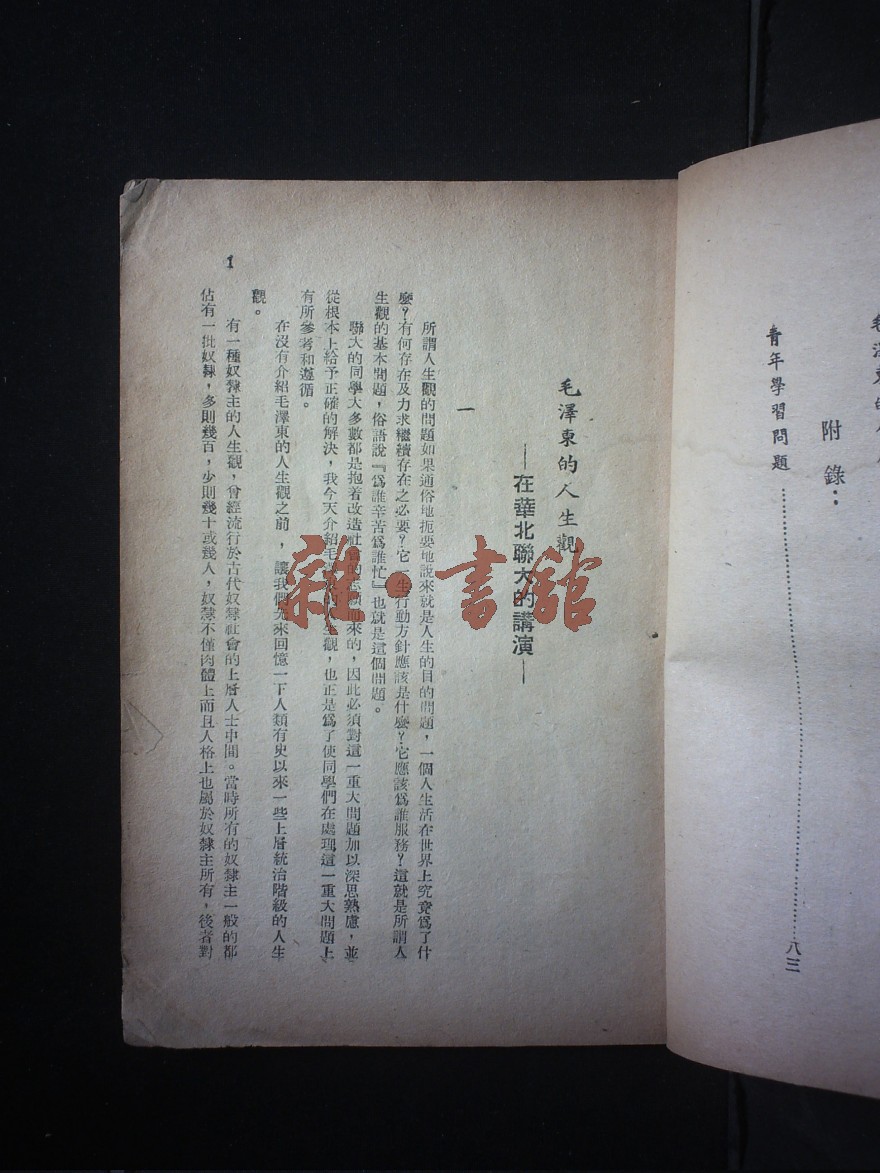 毛澤東的
附錄：
青年學習問題……………………八三
毛澤東的人生觀
—在華北聯大的講演—
一
所謂人生觀的問題如果通俗地扼要地說來就是人生的目的問題，一個人生活在世界上究竟爲了什
麼？有何存在及力求繼續存在之必要？它一生行動方針應該是什麼？它應該爲誰服務？這就是所謂人
生觀的基本問題，俗語說『爲誰辛苦爲誰忙』也就是這個問題。
聯大的同學大多數都是抱着改造社會的志願而來的，因此必須對這一重大問題加以深思熟慮，並
從根本上給予正確的解決，我今天介紹毛澤東的人生觀，也正是爲了使同學們在處理這一重大問題上
有所參考和遵循。
在沒有介紹毛澤東的人生觀之前，讓我們先來回憶一下人類有史以來一些上層統治階級的人生
觀。
有一種奴隸主的人生觀，曾經流行於古代奴隸社會的上層人士中間。當時所有的奴隸主一般的都
佔有一批奴隸，多則幾百，少則幾十或幾人，奴隸不僅肉體上而且人格上也屬於奴隸主所有，後者對
1
雜·書館